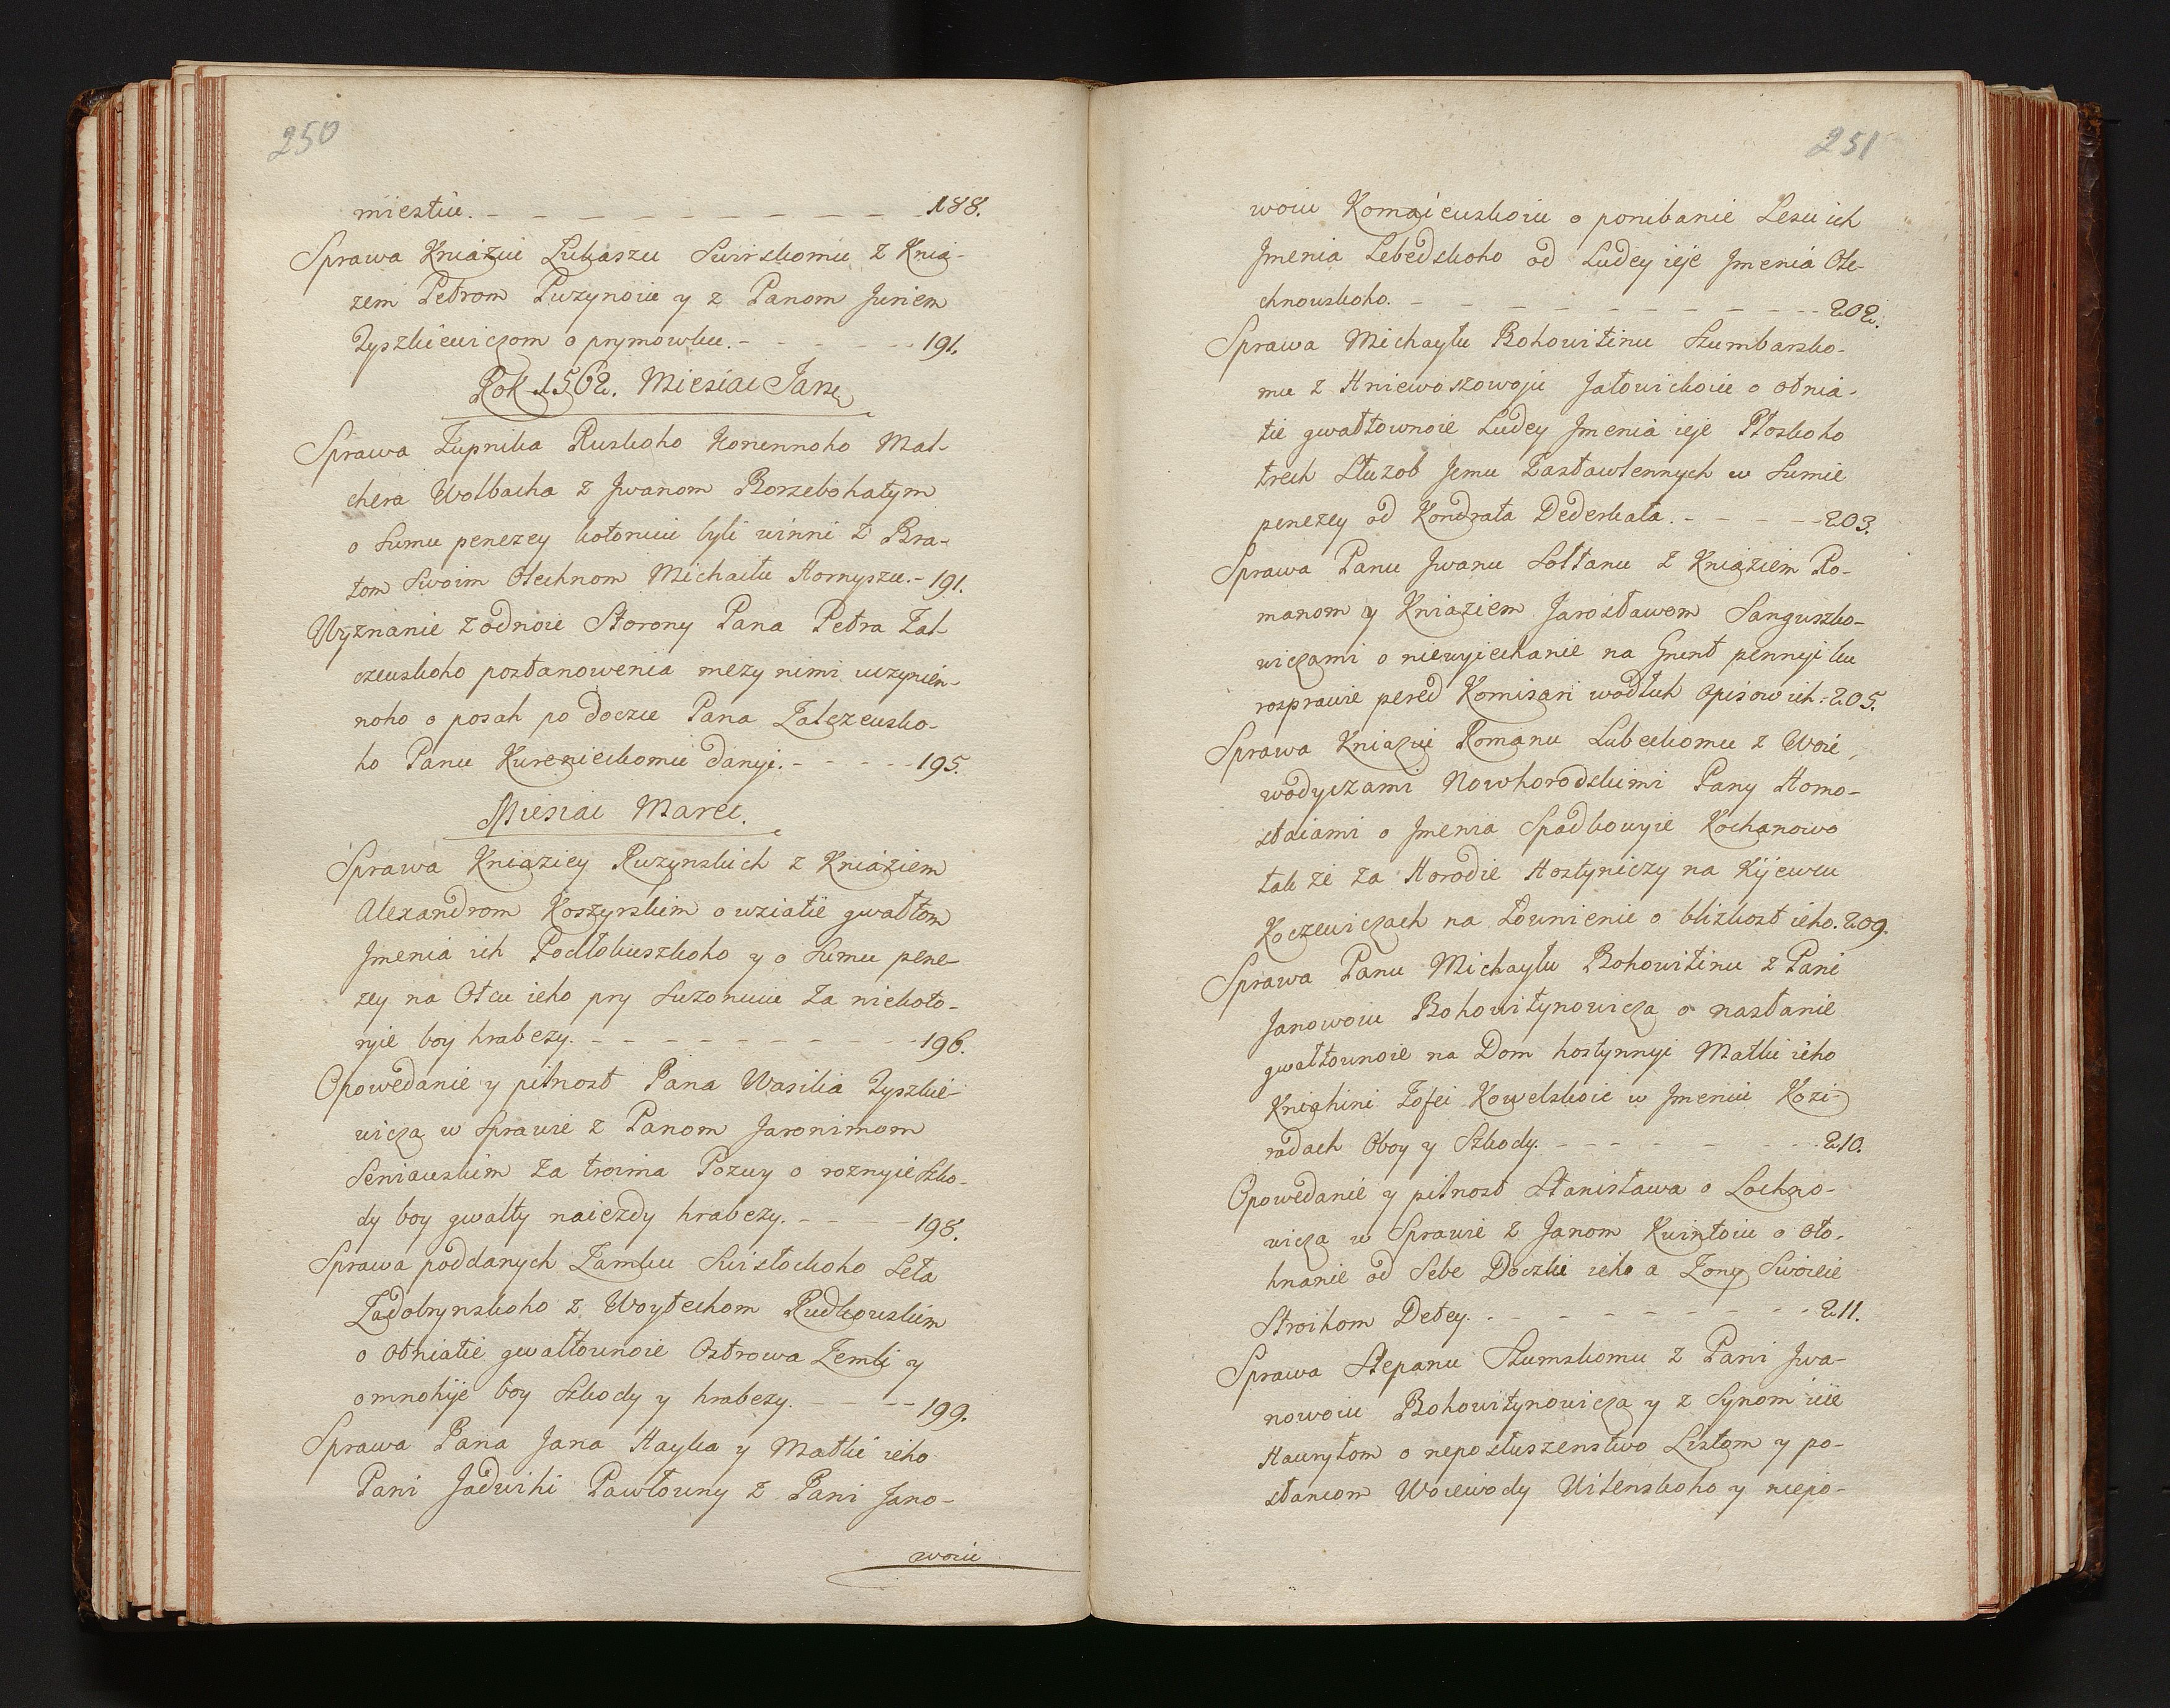 250
miestu. - - - - - - - - - - 188.
Sprawa Kniaziu Lukaszu Swirskomu z Knia-
zem Petrom Puzynoiu y z Panom Juriem
Tyszkiewiczom o prymowku. - - - - - 191.
Rok 1562. Miesiac Janu
Sprawa Zupnika Ruskoho Korunnoho Mal-
chera Wolbacha z Jwanom Borzebohatym
o Sumu penezey kotoruiu byli winni z Bra-
tom Swoim Olechnom Michaiłu Hornyszu. - 191.
Wyznanie z odnoie Storony Pana Petra Zal-
czewskoho postanowenia mezy nimi uczynien-
noho o posah po doczce Pana Zalczewsko-
ho Panu Kurenieckomu danyi. - - - - 195.
Miesiac Marec.
Sprawa Kniaziey Ruzynskich z Kniaziem
Alexandrom Koszyrskim o wziatie gwałtom
Jmenia ich Podłobuszkoho y o Sumu pene-
zey na Otcu ieho pry Suzonuiu za niekoto-
ryie boy hrabezy. - - - - - - - - 196.
Opowedanie y pilnost Pana Wasilia Tyszkie-
wicza w Sprawie z Panom Jaronimom
Seniawskim za troima Pozwy o roznyie Szko-
dy boy gwałty naiezdy hrabezy. - - - - 198.
Sprawa poddanych Zamku Swisłockoho Seła
Zadobrynskoho z Woytechom Rudkowskim
o otniatie gwałtownoie Ostrowa Zemli y
o mnohije boy Szkody y hrabezy. - - - - 199.
Sprawa Pana Jana Hayka y Matki ieho
Pani Jadwihi Pawłowny z Pani Jano-
woiu
251
woiu Komaiewskoiu o porubanie Lesu ich
Jmenia Lebedskoho od Ludey ieje Jmenia Ole-
chnowskoho. - - - - - - - - - - - 202.
Sprawa Michayłu Bohowitinu Szumbarsko-
mu z Hniewoszowoju Jałowickoiu o otnia-
tie gwałtownoie Ludey Jmenia ieje Płoskoho
trech Służob Jemu Zastawlennych w Sumie
penezey od Kondrata Dederkała. - - - - - 203.
Sprawa Panu Jwanu Sołtanu z Kniaziem Ro-
manom y Kniaziem Jarosławom Sanguszko-
wiczami o niewyiechanie na Grunt pennyi ku
rosprawie pered Komisari wodłuh opisow ich: 205.
Sprawa Kniaziu Romanu Lubeckomu z Woie-
wodyczami Nowhorodskimi Pany Homo-
staiami o Jmenia Spadkowyie Kochanowo
tak ze za Horodie Hostyniczy na Kijewcu
Koczewiczach na Łownienie o blizkost ieho. 209.
Sprawa Panu Michayłu Bohowitinu z Pani
Janowoiu Bohowitynowicza o nasłanie
gwałtownoie na Dom hostynnyi Matki ieho
Kniahini Zofei Kowelskoie w Jmeniu Kozi-
radach o boy y Szkody. - - - - - - - 210.
Opowedanie y pilnost Stanisława o Lochno-
wicza w Sprawie z Janom Kwintoiu o oto-
hnanie od Sebe Doczki ieho a Zony Swoieie
Stroihom Detey. - - - - - - - - 211.
Sprawa Stepanu Szumskomu z Pani Jwa-
nowoiu Bohowitynowicza y z Synom ieie
Hawryłom o neposłuszenstwo Listom y po-
słancom Woiewody Witenskoho y niepo-